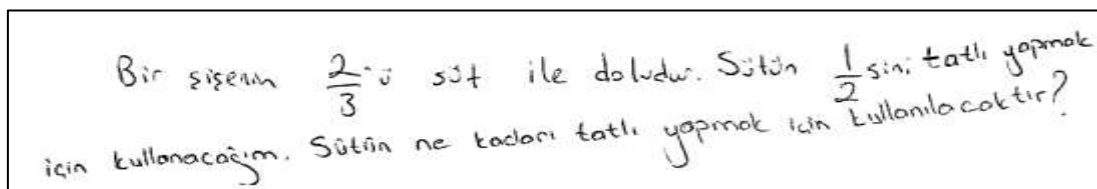 Bir şişenin 2/3'ü süt ile doludur. Sütün 1/2 sini tatlı yapmak
için kullanacağım. Sütün ne kadarı tatlı yapmak için kullanılacaktır?